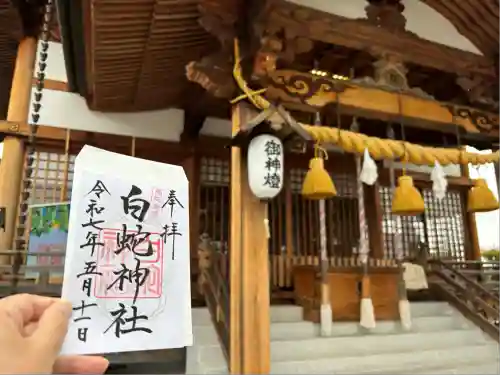 奉拝
白蛇神社
令和七年五月十一日
御神燈